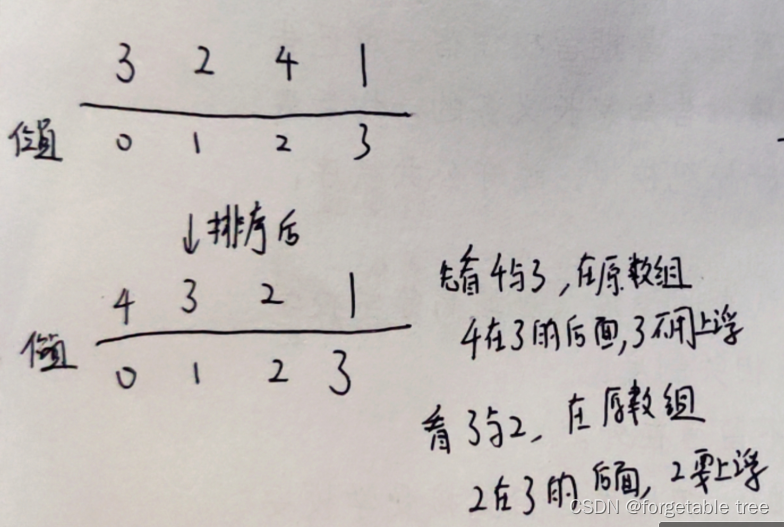 3 2 4 1
位置 0 1 2 3
↓排序后
4 3 2 1
位置 0 1 2 3
先看4与3,在原数组
4在3的后面,3不用上浮
看3与2,在原数组
2在3的后面,2要上浮
CSDN @forgetable tree